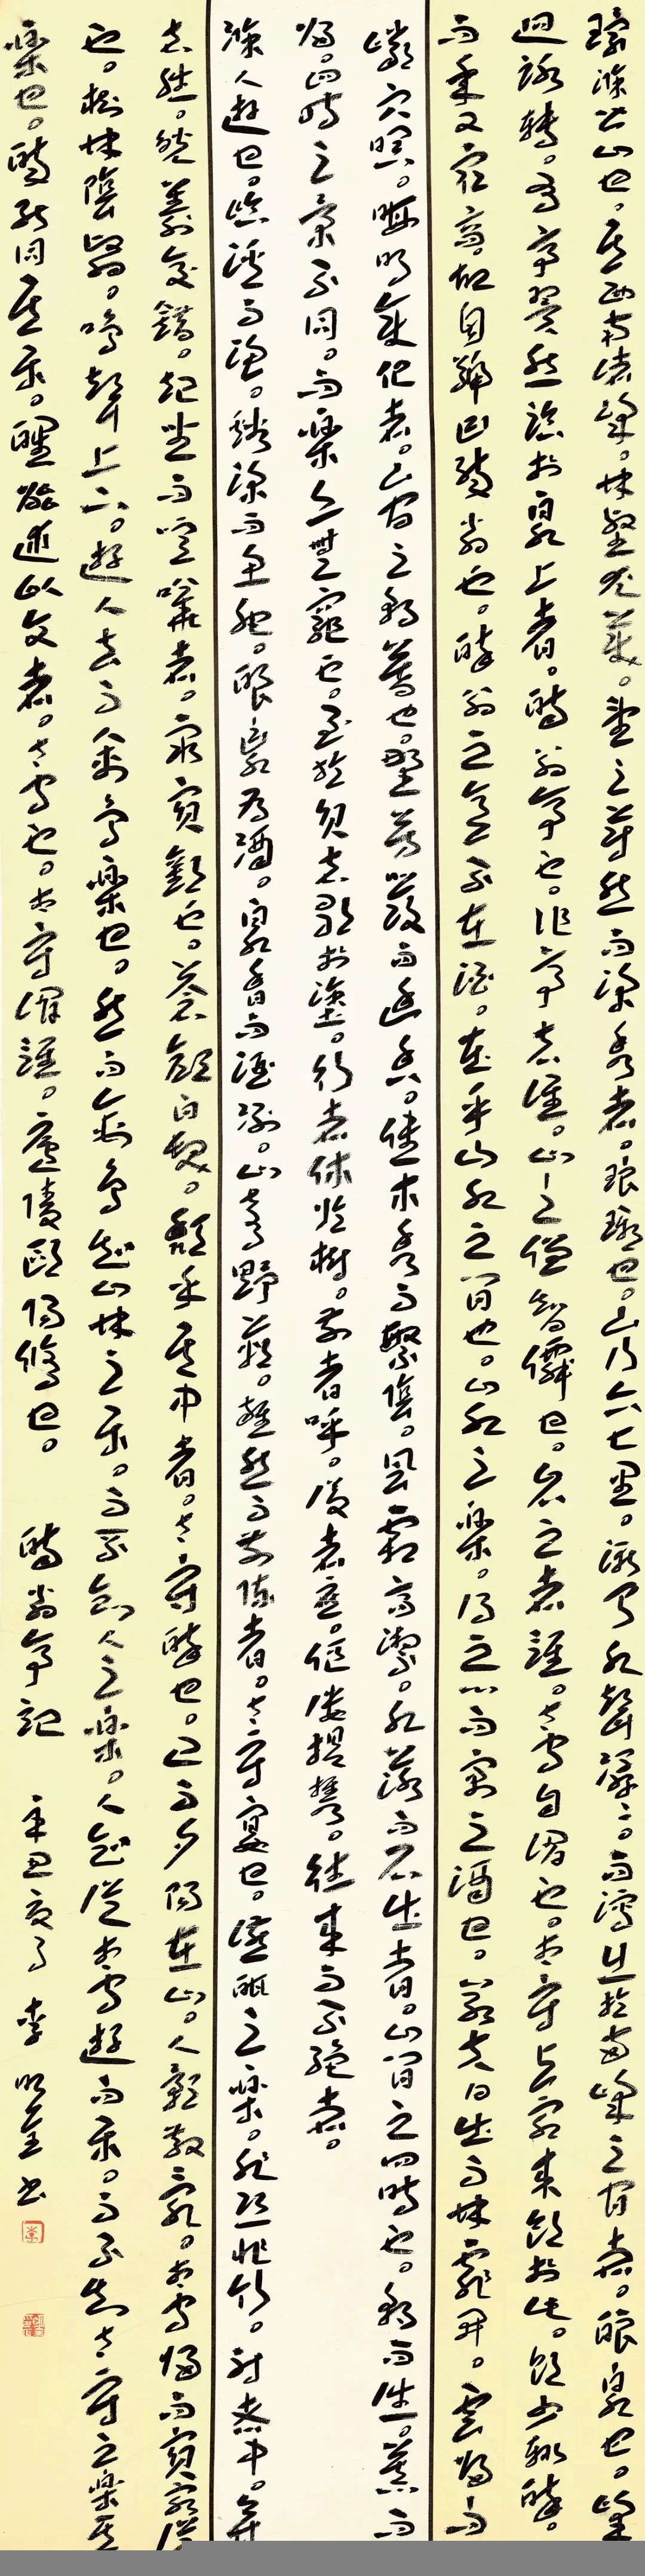 環滁皆山也。其西南諸峰。林壑尤美。望之蔚然而深秀者。琅琊也。山行六七里。漸聞水聲潺々。而瀉出於兩峰之間者。釀泉也。峰
迴路轉。有亭翼然臨於泉上者。醉翁亭也。作亭者誰。山之僧智僊也。名之者誰。太守自謂也。太守與客來飲於此。飲少輒醉。
而年又最高。故自號曰醉翁也。醉翁之意不在酒。在乎山水之間也。山水之樂。得之心而寓之酒也。若夫日出而林霏開。雲歸而
巖穴暝。晦明變化者。山間之朝暮也。野芳發而幽香。佳木秀而繁陰。風霜高潔。水落而石出者。山間之四時也。朝而往。暮而
歸。四時之景不同。而樂亦無窮也。至於負者歌於塗。行者休於樹。前者呼。後者應。傴僂提攜。往來而不絕者。
滁人遊也。臨溪而漁。溪深而魚肥。釀泉為酒。泉香而酒洌。山肴野蔌。雜然而前陳者。太守宴也。宴酣之樂。非絲非竹。射者中。弈
者勝。觥籌交錯。起坐而諠嘩者。眾賓歡也。蒼顏白髮。頹乎其中者。太守醉也。已而夕陽在山。人影散亂。太守歸而賓客從
也。樹林陰翳。鳴聲上下。遊人去而禽鳥樂也。然而禽鳥知山林之樂。而不知人之樂。人知從太守遊而樂。而不知太守之樂其
樂也。醉能同其樂。醒能述以文者。太守也。太守謂誰。廬陵歐陽修也。 醉翁亭記 辛丑夏月 李明 书